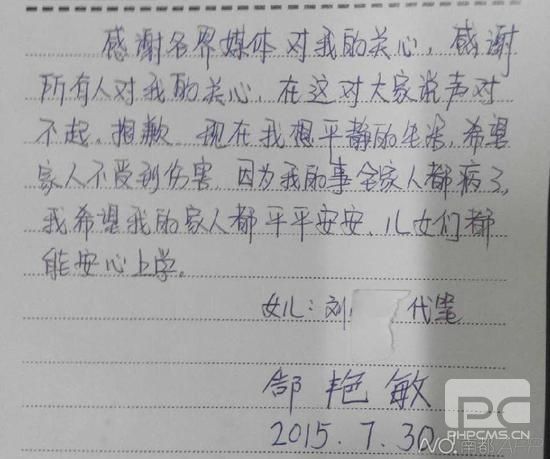 感谢各界媒体对我的关心，感谢
所有人对我的关心，在这对大家说声对
不起，抱歉 现在我想平静的生活，希望
家人不受到伤害，因为我的事全家人都病了，
我希望我的家人都平平安安、儿女们都
能安心上学。
女儿：刘 代笔
郜艳敏
2015.7.30
PC
PHPCMS.CN
南都APP